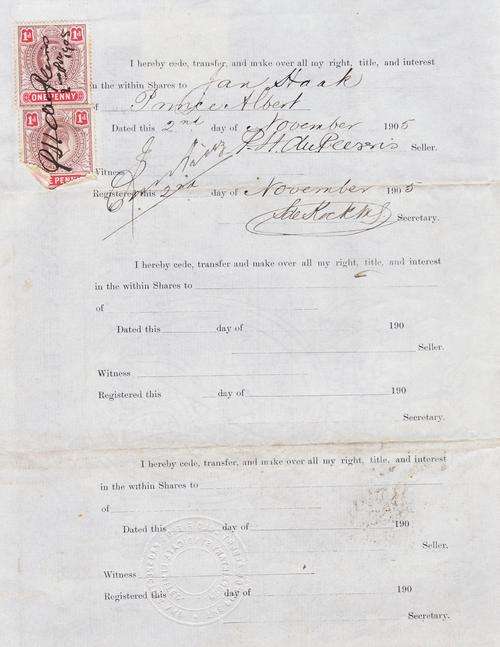 1d 1d
ONE PENNY
1d 1d
PENNY
1905
I hereby cede, transfer, and make over all my right, title, and interest
in the within Shares to Jan Haak
of Prince Albert
Dated this 2nd day of November 1905
Seller.
Witness
Registered this 2nd day of November 1905
Secretary.
I hereby cede, transfer and make over all my right, title, and interest
in the within Shares to
of
Dated this day of 190
Seller.
Witness
Registered this day of 190
Secretary.
I hereby cede, transfer, and make over all my right, title, and interest
in the within Shares to
of
Dated this day of 190
Seller.
Witness
Registered this day of 190
Secretary.